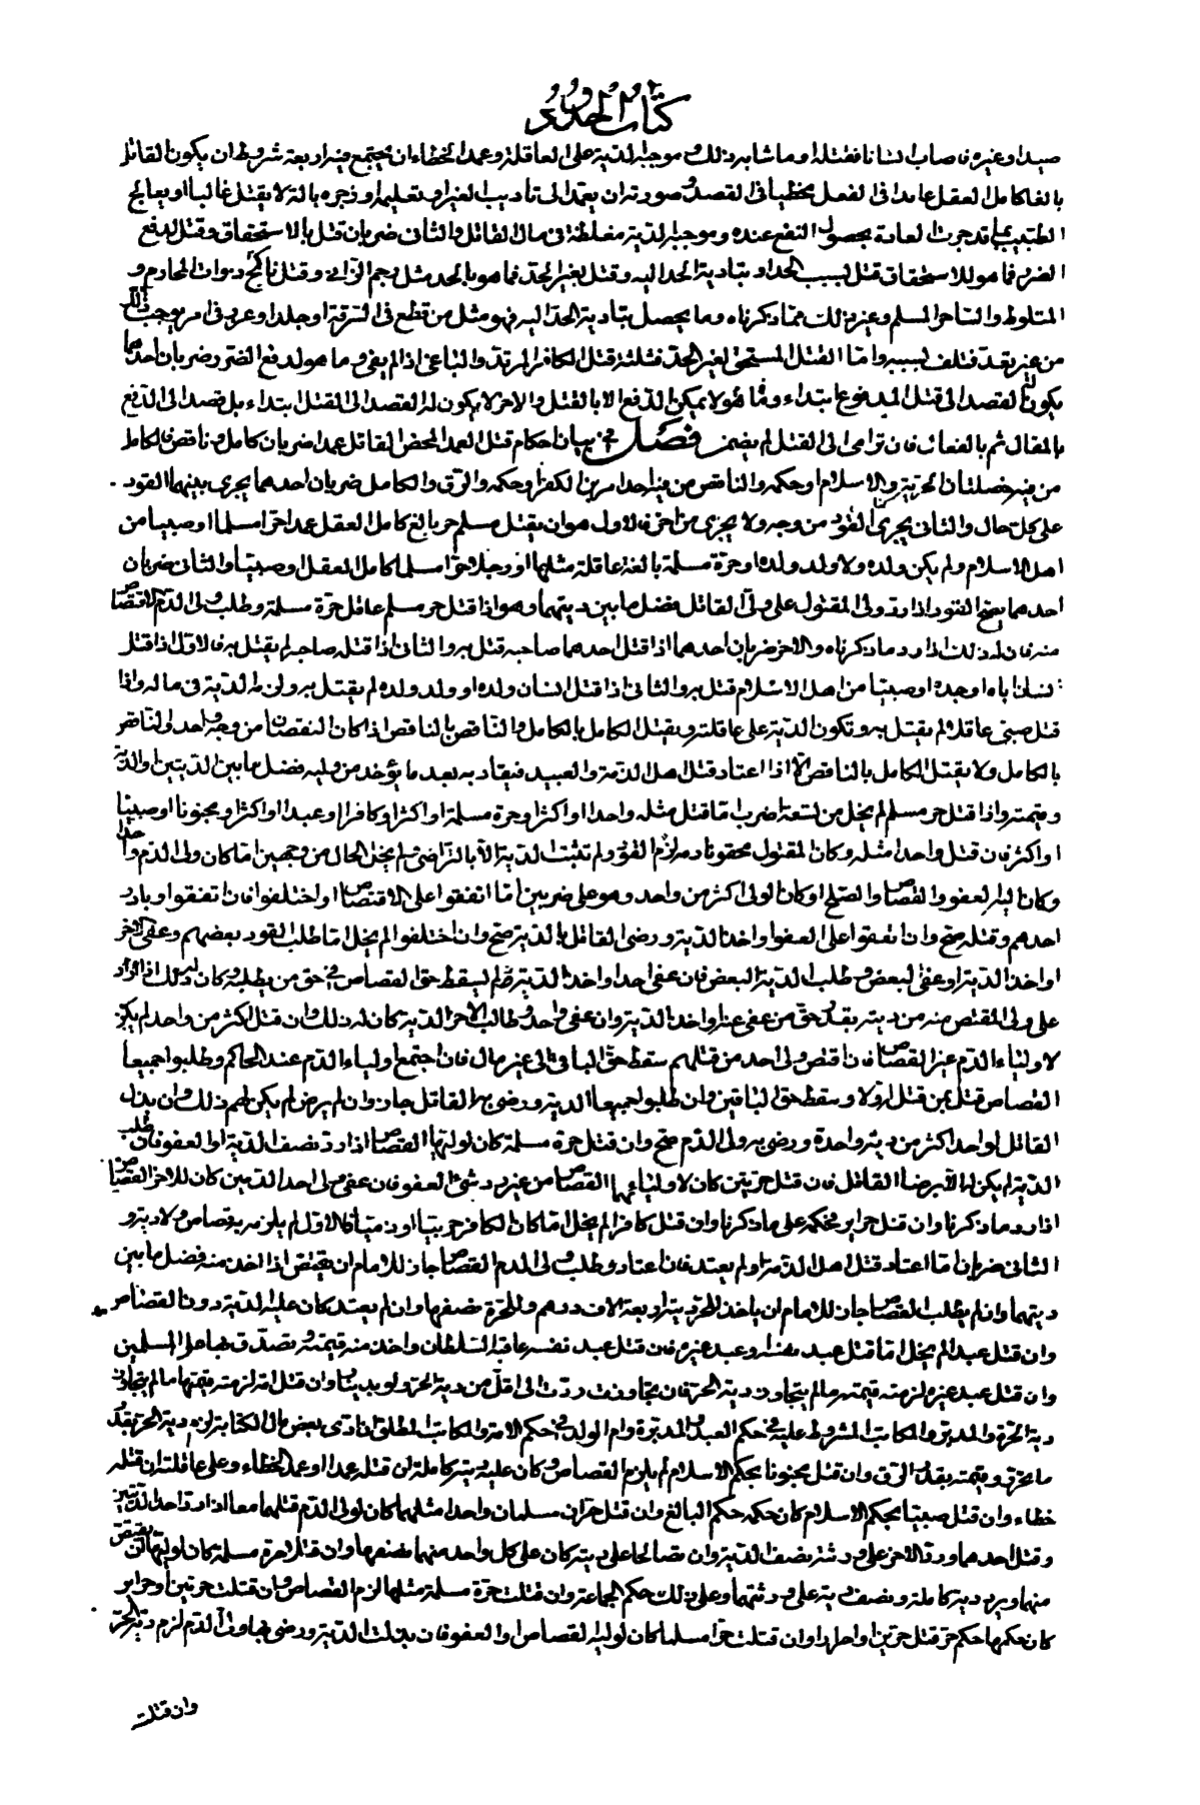 كتاب الحدود
صيدا وغيره فاصاب انسانا فقتله وما شابه ذلك وموجبه الدية على العاقلة وعمد الخطاء ان يجتمع فيه اربعة شروط ان يكون القاتل
بالغا كامل العقل عامدا فى الفعل مخطيا فى القصد وصورته ان يعمد الى تاديب الغير او تعليمه او زجره بالة لا يقتل غالبا او يعالج
الطبيب بما قد جرت العادة بحصول النفع عنده وموجبه الدية مغلظة فى مال القاتل والثانى ضربان قتل بالاستحقاق وقتل لدفع
الضرر فما هو بالاستحقاق قتل بسبب الحد او بتادية الحد اليه وقتل بغير الحد فما هو بالحد مثل رجم الزانى وقتل ناكح ذوات المحارم و
المتلوط والساحر المسلم وغير ذلك مما ذكرناه وما يحصل بتادية الحد اليه فهو مثل من قطع فى السرقة او جلد او عزر فى امر يوجب ذلك
من غير تعد فتلف بسببه واما القتل المستحق لغير الحد فثلثة قتل الكافر المرتد والباغى اذا لم يفئ وما هو لدفع الضرر ضربان احدهما
يكون القصد الى قتل المدفوع ابتداء وما هو لا يمكن الدفع الا بالقتل والاخر لا يكون له القصد الى القتل ابتداء بل قصد الى الدفع
بالمقال ثم بالفعال فان ترامى الى القتل لم يضمن فصل فى بيان احكام قتل العمد المحض القاتل عمدا ضربان كامل وناقص فالكامل
من فيه خصلتان الحرية والاسلام او حكمه والناقص من فيه احد امرين الكفر او حكمه والرق والكامل ضربان احدهما يجرى بينهما القود
على كل حال والثانى يجرى القود من وجه ولا يجرى من اخر فالاول هو ان يقتل مسلم حر بالغ كامل العقل عمدا حرا مسلما او صبيا من
اهل الاسلام ولم يكن ولده ولا ولد ولده او حرة مسلمة بالغة عاقلة مثلها او رجلا حرا مسلما كامل العقل او صبيا والثانى ضربان
احدهما يصح القود اذا رد ولى المقتول على ولى القاتل فضل ما بين ديتهما وهو اذا قتل حر مسلم عاقل حرة مسلمة وطلب ولى الدم الاقتصاص
منه فان له ذلك اذا رد ما ذكرناه والاخر ضربان احدهما اذا قتل احدهما صاحبه قتل به والثانى اذا قتله صاحبه لم يقتل به فالاول اذا قتل
انسان اباه او جده او صبيا من اهل الاسلام قتل به والثانى اذا قتل انسان ولده او ولد ولده لم يقتل به ولزمه الدية فى ماله واذا
قتل صبى عاقلا لم يقتل به وتكون الدية على عاقلته ويقتل الكامل بالكامل والناقص بالناقص اذا كان النقصان من وجه واحد والناقص
بالكامل ولا يقتل الكامل بالناقص الا اذا اعتاد قتل اهل الذمة والعبيد فيقاد به بعد ما يؤخذ من وليه فضل ما بين الديتين او الدية
وقيمته واذا قتل حر مسلم لم يخل من تسعة اضرب اما قتل مثله واحدا او اكثر او حرة مسلمة او اكثر او كافرا او عبدا او اكثر او مجنونا او صبيا
او اكثر فان قتل واحدا مثله وكان المقتول محقون الدم لزم القود ولم تثبت الدية الا بالتراضى ولم يخل الحال من وجهين اما كان ولى الدم واحدا
وكان اليه العفو والقصاص والصلح او كان الولى اكثر من واحد وهو على ضربين اما اتفقوا على الاقتصاص او اختلفوا فان اتفقوا وبادر
احدهم وقتله صح وان اتفقوا على العفو او اخذ الدية ورضى القاتل بالدية صح وان اختلفوا لم يخل اما طلب القود بعضهم وعفى الاخر
او اخذ الدية او عفى البعض وطلب الدية البعض فان عفى احد او اخذ الدية لم يسقط حق القصاص فى حق من يطلبه وكان له ذلك اذا رد
على ولى المقتص منه من ديته بقدر حق من عفى عنه او اخذ الدية وان عفى واحد وطالب الاخر الدية كان له ذلك وان قتل اكثر من واحد لم يكن
لاولياء الدم غير القصاص فان اقتص ولى احد من قتلهم سقط حق الباقى الى غير مال فان اجتمع اولياء الدم عند الحاكم وطلبوا جميعا
القصاص قتل بمن قتل اولا وسقط حق الباقين وان طلبوا جميعا الدية ورضى بها القاتل جاز وان لم يرض لم يكن لهم ذلك وان بذل
القاتل لواحد اكثر من دية واحدة ورضى به ولى الدم صح وان قتل حرة مسلمة كان لوليها القصاص اذا رد نصف الدية او العفو فان طلب
الدية لم يكن له الا برضا القاتل فان قتل حرتين كان لاوليائهما القصاص من غير رد شئ او العفو فان عفى ولى احد الدمين كان للاخر القصاص
اذا رد ما ذكرنا وان قتل حراير فحكمه على ما ذكرنا وان قتل كافرا لم يخل اما كان الكافر حربيا او ذميا فالاول لم يلزمه به قصاص ولا دية و
الثانى ضربان اما اعتاد قتل اهل الذمة او لم يعتد فان اعتاد وطلب ولى الدم القصاص جاز للامام ان يقتص اذا اخذ منه فضل ما بين
ديتهما وان لم يطلب القصاص جاز للامام ان ياخذ للحر دية اربعة الاف درهم وللحرة نصفها وان لم يعتد كان عليه الدية دون القصاص
وان قتل عبدا لم يخل اما قتل عبد نفسه او عبد غيره فان قتل عبد نفسه عاقبه السلطان واخذ منه قيمته وتصدق بها على المسلمين
وان قتل عبد غيره لزمته قيمته ما لم يتجاوز دية الحر فان تجاوزت ردت الى اقل من دية الحر ولو بدينار وان قتل امة لزمته قيمتها ما لم يتجاوز
دية الحرة والمدبر والمكاتب المشروط عليه فى حكم العبد والمدبرة وام الولد فى حكم الامة والمكاتب المطلق ان ادى بعض مال الكتابة لزم دية الحر بقدر
ما تحرر وقيمته بقدر الرق وان قتل مجنونا بحكم الاسلام لم يلزم القصاص وكان عليه دية كاملة ان قتله عمدا او عمد الخطاء وعلى عاقلته ان قتله
خطاء وان قتل صبيا بحكم الاسلام كان حكمه حكم البالغ وان قتل حران مسلمان واحدا مثلهما كان لولى الدم قتلهما معا اذا رد احد الديتين
وقتل احدهما ورد الاخر على ورثته نصف الدية وان تصالحا على دية كان على كل واحد منهما نصفها وان قتلا حرة مسلمة كان لوليها ان يقتص
منهما ويرد دية كاملة ونصف دية على ورثتهما وعلى ذلك حكم الجماعة وان قتلت حرة مسلمة مثلها لزم القصاص وان قتلت حرتين او حراير
كان حكمها حكم حر قتل حرين او احرارا وان قتلت حرا مسلما كان لوليه القصاص او العفو فان بذلت الدية ورضى بها ولى الدم لزم دية الحر
وان قتلت